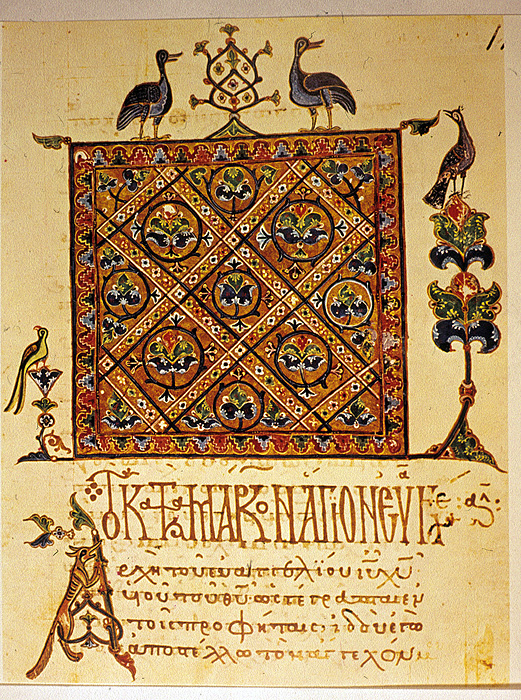 Τὸ ΚαΤὰ ΜΑΡΚοΝ ΑΓΙΟΝ ΕΥΑΓΓΕ
Αρχὴ τοῦ εὐαγγελίου ἰῦ χῦ
υἱοῦ τοῦ θῦ ὡς γέγραπται ἐν
τοῖς προφήταις· ἰδοὺ ἐγὼ
ἀποστέλλω τὸν ἄγγελόν μου